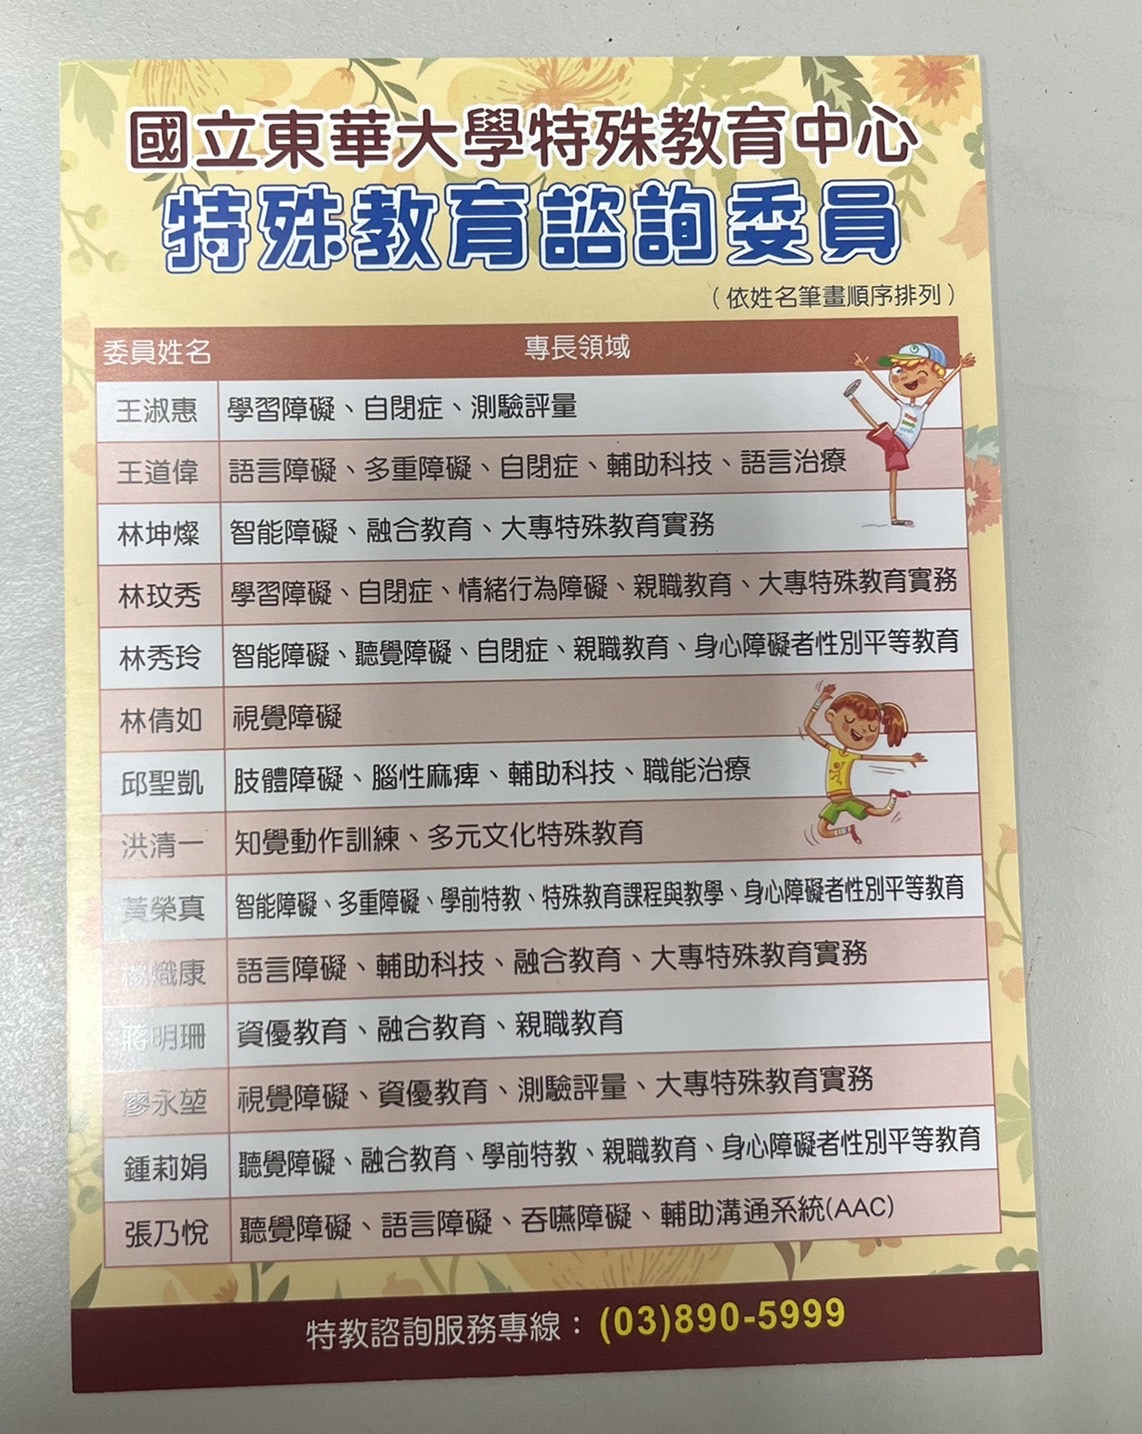 國立東華大學特殊教育中心
特殊教育諮詢委員
（依姓名筆畫順序排列）
委員姓名 專長領域
王淑惠 學習障礙、自閉症、測驗評量
王道偉 語言障礙、多重障礙、自閉症、輔助科技、語言治療
林坤燦 智能障礙、融合教育、大專特殊教育實務
林玟秀 學習障礙、自閉症、情緒行為障礙、親職教育、大專特殊教育實務
林秀玲 智能障礙、聽覺障礙、自閉症、親職教育、身心障礙者性別平等教育
林倩如 視覺障礙
邱聖凱 肢體障礙、腦性麻痺、輔助科技、職能治療
洪清一 知覺動作訓練、多元文化特殊教育
黃榮真 智能障礙、多重障礙、學前特教、特殊教育課程與教學、身心障礙者性別平等教育
楊熾康 語言障礙、輔助科技、融合教育、大專特殊教育實務
蔣明珊 資優教育、融合教育、親職教育
廖永堃 視覺障礙、資優教育、測驗評量、大專特殊教育實務
鍾莉娟 聽覺障礙、融合教育、學前特教、親職教育、身心障礙者性別平等教育
張乃悅 聽覺障礙、語言障礙、吞嚥障礙、輔助溝通系統(AAC)
特教諮詢服務專線：(03)890-5999